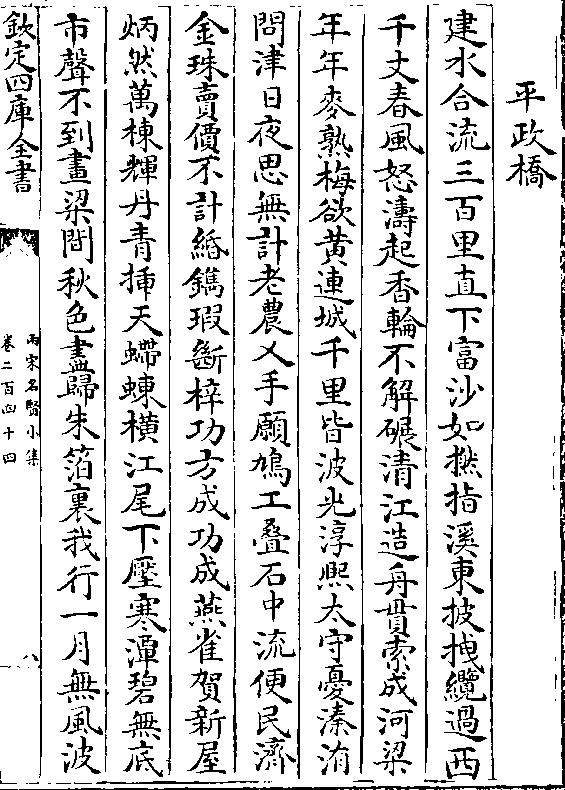 平政橋
建水合流三百里直下富沙如撚指溪東披拽纜過西
千丈春風怒濤起香輪不解碾清江造舟貫索成河梁
年年麥熟梅欲黄連城千里皆波光淳熙太守憂溱洧
問津日夜思無計老農乂手願鳩工叠石中流便民濟
金珠賣價不計緍鐫瑕斷梓功方成功成燕雀賀新屋
炳然萬棟輝丹青揷天螮蝀橫江尾下壓寒潭碧無底
市聲不到畫梁間秋色盡歸朱箔裏我行一月無風波
欽定四庫全書
兩宋名賢小集
卷二百四十四
八